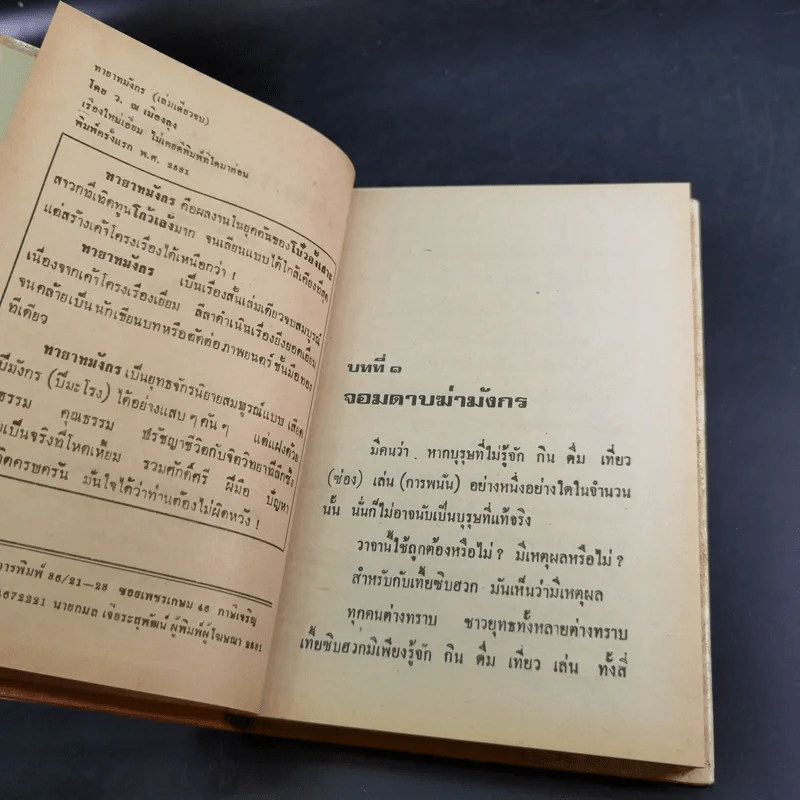 ทายาทมังกร (เล่มเดียวจบ)
โดย ว. ณ เมืองลุง
เรื่องใหม่เอี่ยม ไม่เคยตีพิมพ์ที่ใดมาก่อน
พิมพ์ครั้งแรก พ.ศ. 2531
ทายาทมังกร คือผลงานในยุคต้นของโบ้วย้งเสาะ
สาวกที่เทิดทูนโกวเล้งมาก จนเลียนแบบได้ใกล้เคียงที่สุด
แต่สร้างเค้าโครงเรื่องได้เหนือกว่า !
ทายาทมังกร เป็นเรื่องสั้นเล่มเดียวจบสมบูรณ์
เนื่องจากเค้าโครงเรื่องเยี่ยม ลีลาดำเนินเรื่องยิ่งยอดเยี่ยม
จนคล้ายเป็นนักเขียนบทหรือตัดต่อภาพยนตร์ชั้นมือทอง
ทีเดียว
ทายาทมังกร เป็นยุทธจักรนิยายสมบูรณ์แบบ เสียด
ปีมังกร (ปีมะโรง) ได้อย่างแสบๆ คันๆ แต่แฝงด้วย
ธรรม คุณธรรม ปรัชญาชีวิตกับจิตวิทยาที่ลึกซึ้ง
เป็นจริงที่โหดเหี้ยม รวมศักดิ์ศรี ฝีมือ ปัญหา
ครบครัน มั่นใจได้ว่าท่านต้องไม่ผิดหวัง !
การพิมพ์ 86/21-28 ซอยเพชรเกษม 46 ภาษีเจริญ
4672221 นายกมล เจียระสุพัฒน์ ผู้พิมพ์ผู้โฆษณา 2531
บทที่ ๑
จอมดาบฆ่ามังกร
มีคนว่า หากบุรุษที่ไม่รู้จัก กิน ดื่ม เที่ยว
(ซ่อง) เล่น (การพนัน) อย่างหนึ่งอย่างใดในจำนวน
นั้น นั่นก็ไม่อาจนับเป็นบุรุษที่แท้จริง
วาจานี้ใช้ถูกต้องหรือไม่ ? มีเหตุผลหรือไม่ ?
สำหรับกับเที้ยซิบฮวก มันเห็นว่ามีเหตุผล
ทุกคนต่างทราบ ชาวยุทธทั้งหลายต่างทราบ
เที้ยซิบฮวกมิเพียงรู้จัก กิน ดื่ม เที่ยว เล่น ทั้งสี่